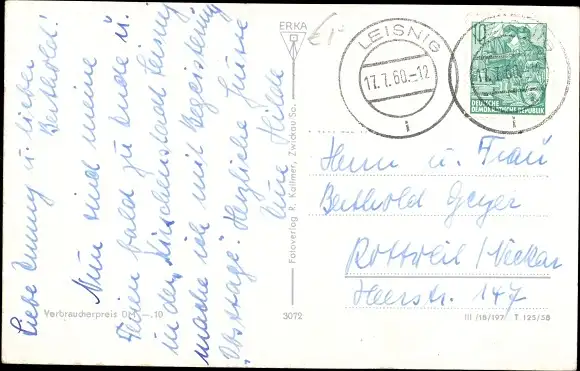 Liebe Emmy u. lieber
Berthold!
Nun sind meine
Ferien bald zu Ende u.
in der "Kirschenstadt Leisnig
mache ich mit Begeisterung
"Obsttage". Herzliche Grüsse
Eure Hilde
Verbraucherpreis DM -.10
ERKA
Fotoverlag R. Kallmer, Zwickau Sa.
3072
€1-
LEISNIG
17.7.60.-12
i
10
17.7.60
i
DEUTSCHE
DEMOKRATISCHE REPUBLIK
Herrn u. Frau
Berthold Geyer
Rottweil/Neckar
Heerstr. 147
III/18/197 T 125/58